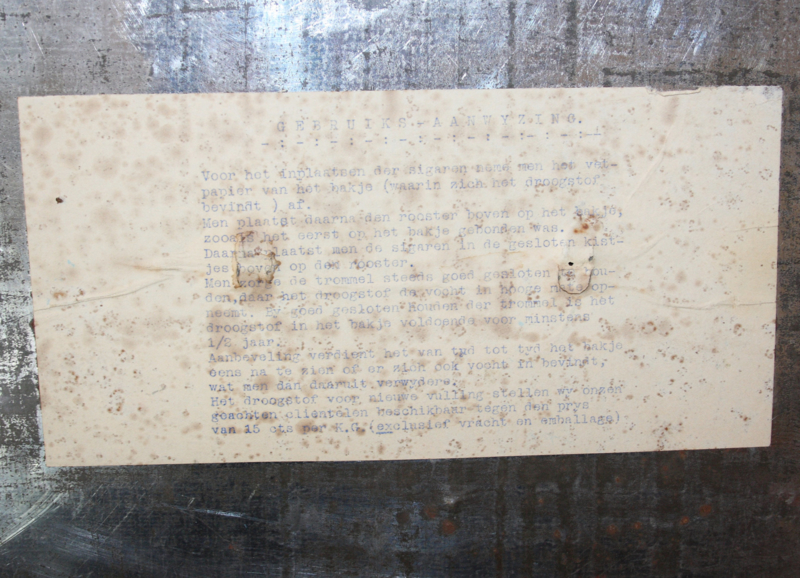 GEBRUIKS-AANWYZING.
Voor het inplaatsen der sigaren neme men het vel-
papier van het bakje (waarin zich het droogstof
bevindt ) af.
Men plaatst daarna den rooster boven op het bakje,
zooals het eerst op het bakje gebonden was.
Daarna plaatst men de sigaren in de gesloten kist-
jes boven op den rooster.
Men zorge de trommel steeds goed gesloten te hou-
den, daar het droogstof de vocht in hooge mate op-
neemt. By goed gesloten houden der trommel is het
droogstof in het bakje voldoende voor minstens
1/2 jaar.
Aanbeveling verdient het van tyd tot tyd het bakje
eens na te zien of er zich ook vocht in bevindt,
wat men dan daaruit verwydere.
Het droogstof voor nieuwe vulling stellen wy onzen
geachten clientelen beschikbaar tegen den prys
van 15 cts per K.G. (exclusief vracht en emballage)